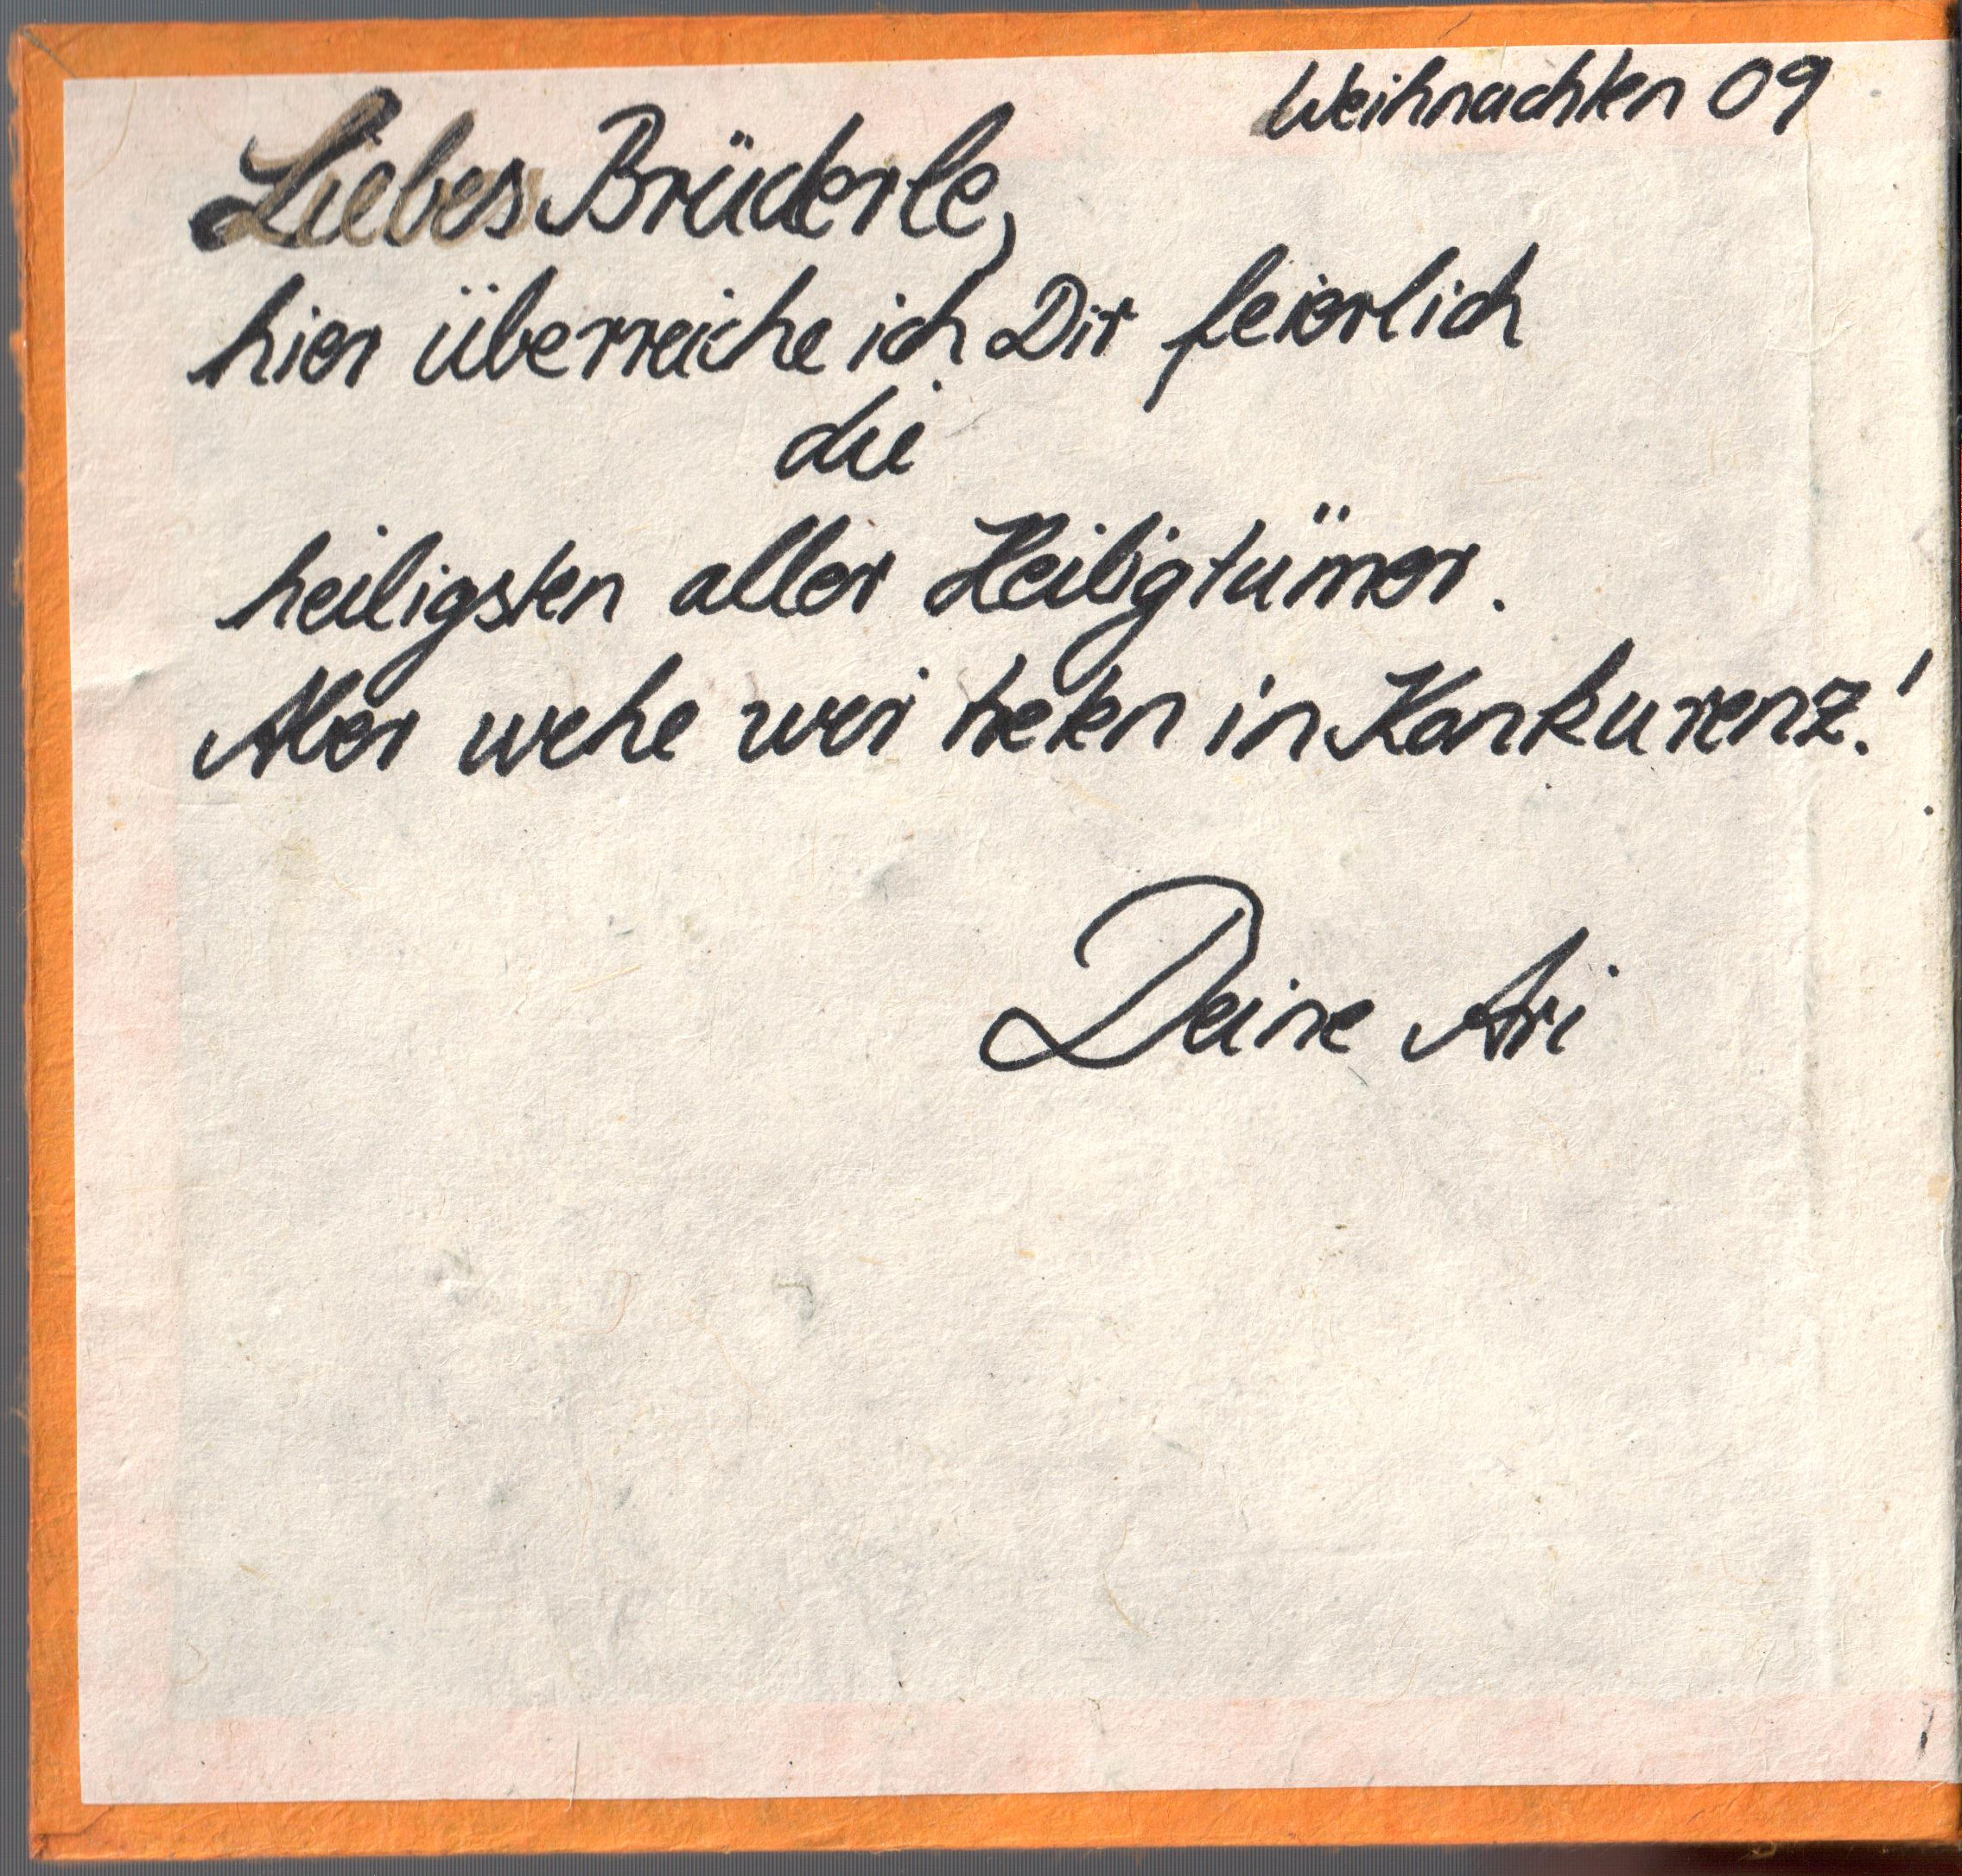 Weihnachten 09
Liebes Brüderle,
hier überreiche ich Dir feierlich
die
heiligsten aller Heiligtümer.
Aber wehe wir treten in Konkurenz!
Deine Ari